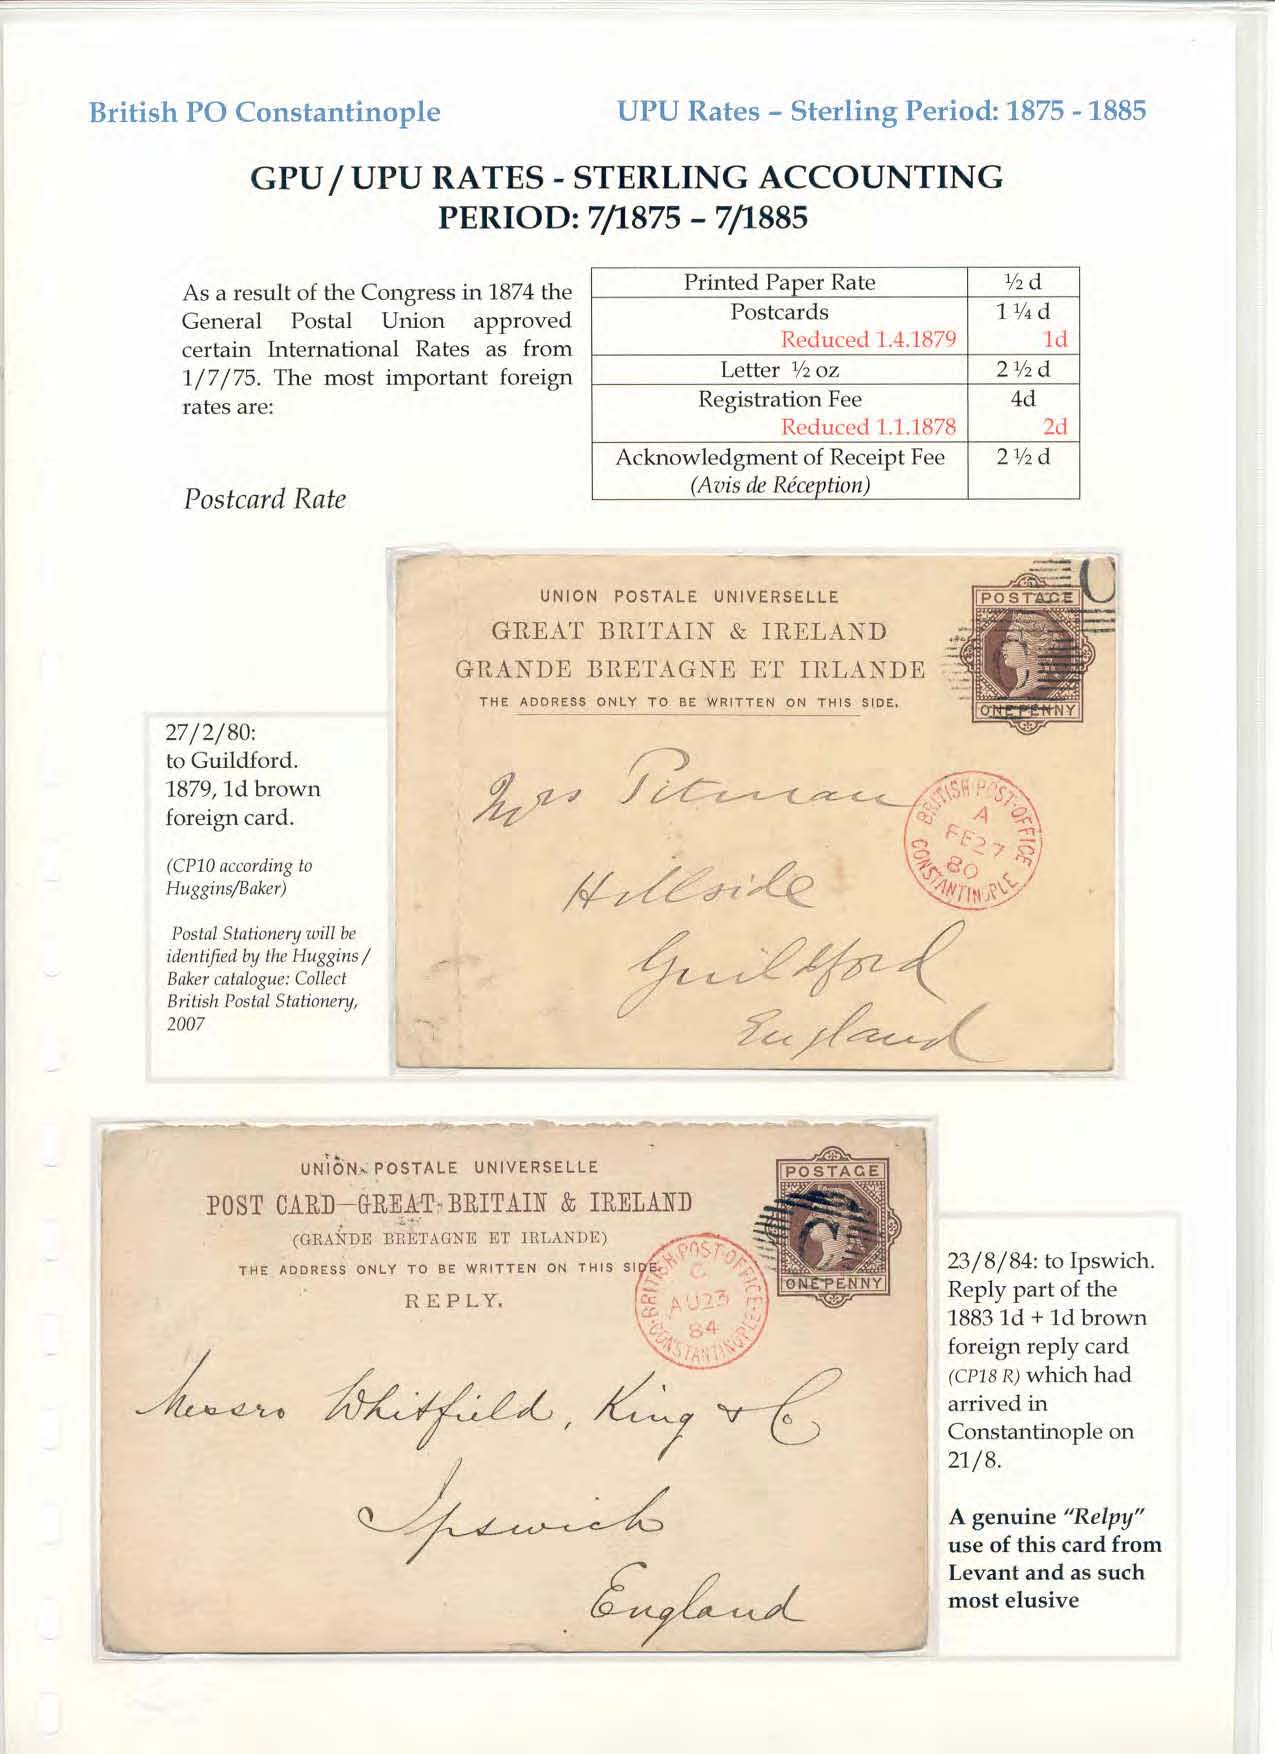 British PO Constantinople
UPU Rates – Sterling Period: 1875 - 1885
GPU / UPU RATES - STERLING ACCOUNTING
PERIOD: 7/1875 – 7/1885
As a result of the Congress in 1874 the
General Postal Union approved
certain International Rates as from
1/7/75. The most important foreign
rates are:
Printed Paper Rate ½ d
Postcards 1 ¼ d
Reduced 1.4.1879 1d
Letter ½ oz 2 ½ d
Registration Fee 4d
Reduced 1.1.1878 2d
Acknowledgment of Receipt Fee 2 ½ d
(Avis de Réception)
Postcard Rate
UNION POSTALE UNIVERSELLE
GREAT BRITAIN & IRELAND
GRANDE BRETAGNE ET IRLANDE
THE ADDRESS ONLY TO BE WRITTEN ON THIS SIDE.
POSTAGE
ONE PENNY
C
Mrs Pitman
Hillside
Guildford
England
BRITISH POST OFFICE
A
FE27
80
CONSTANTINOPLE
27/2/80:
to Guildford.
1879, 1d brown
foreign card.
(CP10 according to
Huggins/Baker)
Postal Stationery will be
identified by the Huggins /
Baker catalogue: Collect
British Postal Stationery,
2007
UNION POSTALE UNIVERSELLE
POST CARD—GREAT BRITAIN & IRELAND
(GRANDE BRETAGNE ET IRLANDE)
THE ADDRESS ONLY TO BE WRITTEN ON THIS SIDE.
REPLY.
POSTAGE
ONE PENNY
C
BRITISH POST OFFICE
C
AU23
84
CONSTANTINOPLE
Messrs Whitfield, King & Co
Ipswich
England
23/8/84: to Ipswich.
Reply part of the
1883 1d + 1d brown
foreign reply card
(CP18 R) which had
arrived in
Constantinople on
21/8.
A genuine "Relpy"
use of this card from
Levant and as such
most elusive